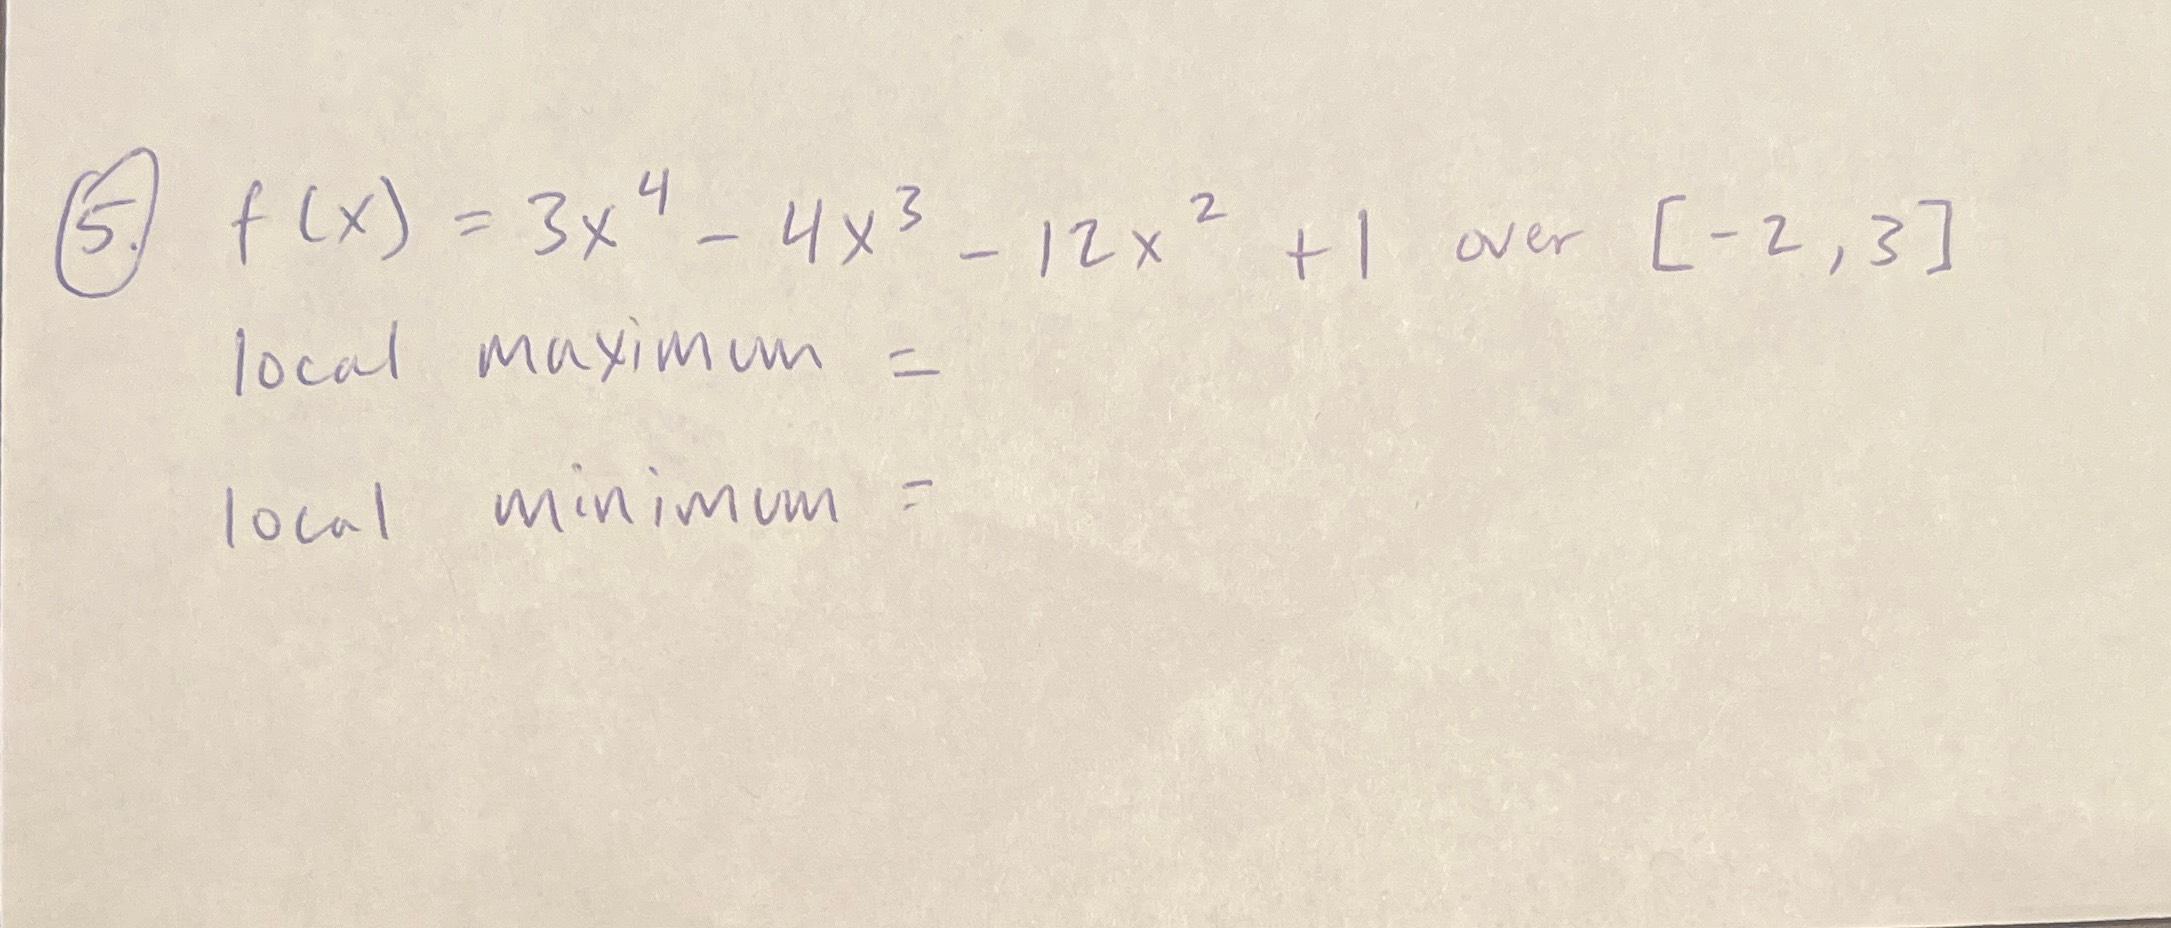 5. f(x) = 3x⁴ - 4x³ - 12x² + 1 over [-2, 3]
local maximum =
local minimum =